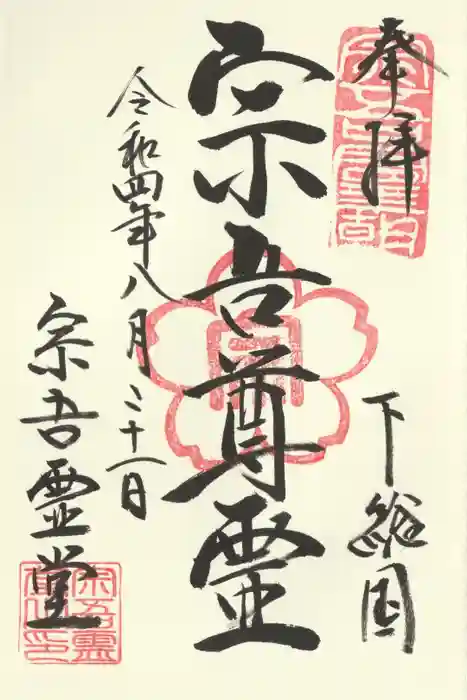 奉拝
下総国
宗吾尊霊
令和四年八月二十一日
宗吾霊堂